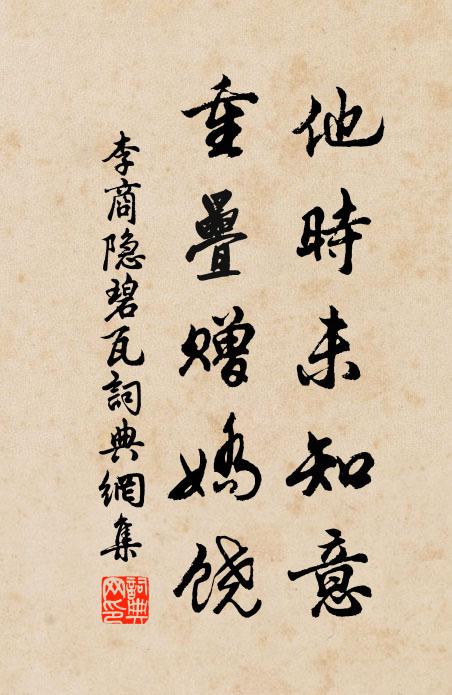 他時未知意
重疊赠嬌饶
李商隐碧瓦詞典網集
詞典网印